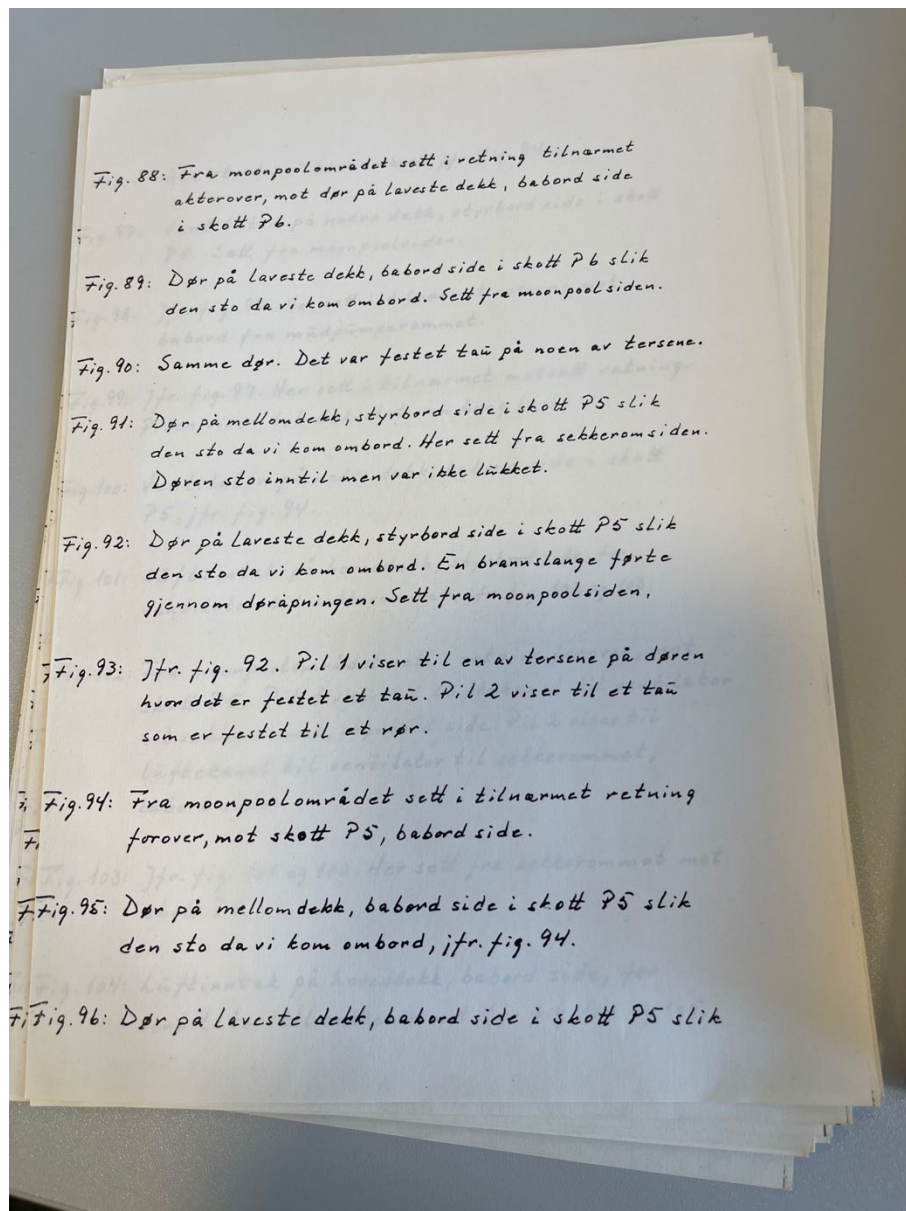 Fig. 88: Fra moonpoolområdet sett i retning tilnærmet
akterover, mot dør på laveste dekk, babord side
i skott P6.
Fig. 89: Dør på laveste dekk, babord side i skott P6 slik
den sto da vi kom ombord. Sett fra moonpoolsiden.
Fig. 90: Samme dør. Det var festet tau på noen av tersene.
Fig. 91: Dør på mellomdekk, styrbord side i skott P5 slik
den sto da vi kom ombord. Her sett fra sekkeromsiden.
Døren sto inntil men var ikke lukket.
Fig. 92: Dør på laveste dekk, styrbord side i skott P5 slik
den sto da vi kom ombord. En brannslange førte
gjennom døråpningen. Sett fra moonpoolsiden.
Fig. 93: Jfr. fig. 92. Pil 1 viser til en av tersene på døren
hvor det er festet et tau. Pil 2 viser til et tau
som er festet til et rør.
Fig. 94: Fra moonpoolområdet sett i tilnærmet retning
forover, mot skott P5, babord side.
Fig. 95: Dør på mellomdekk, babord side i skott P5 slik
den sto da vi kom ombord, jfr. fig. 94.
Fig. 96: Dør på laveste dekk, babord side i skott P5 slik